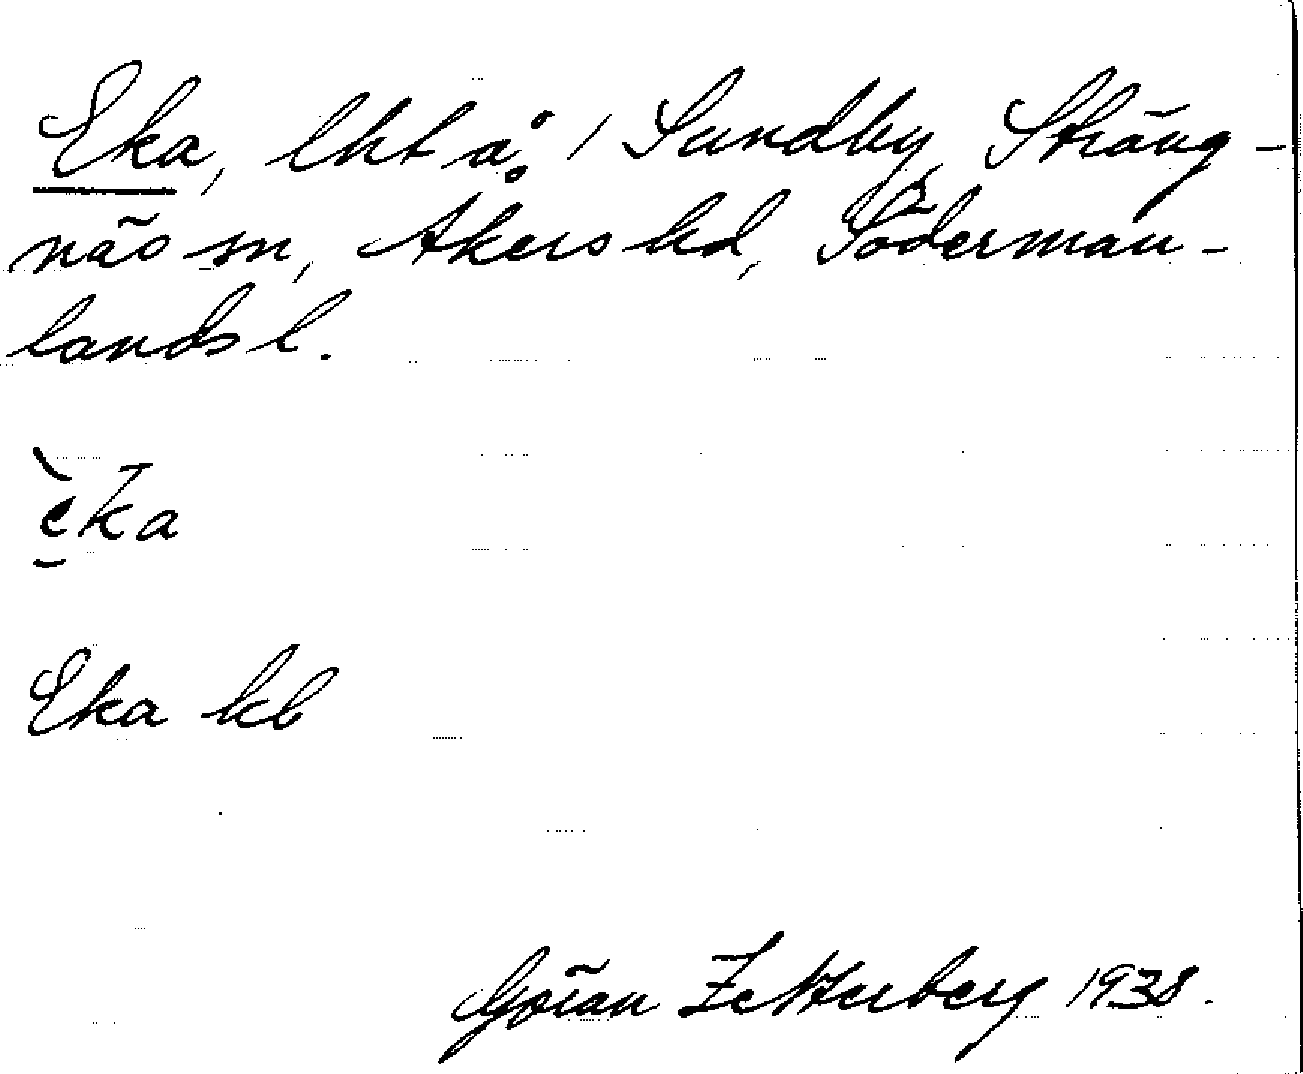 Eka, lht å, / Sundby, Sträng-
näs sn, Åkers hd, Söderman-
lands l.
èka
Eka kb
Göran Zetterberg 1938.